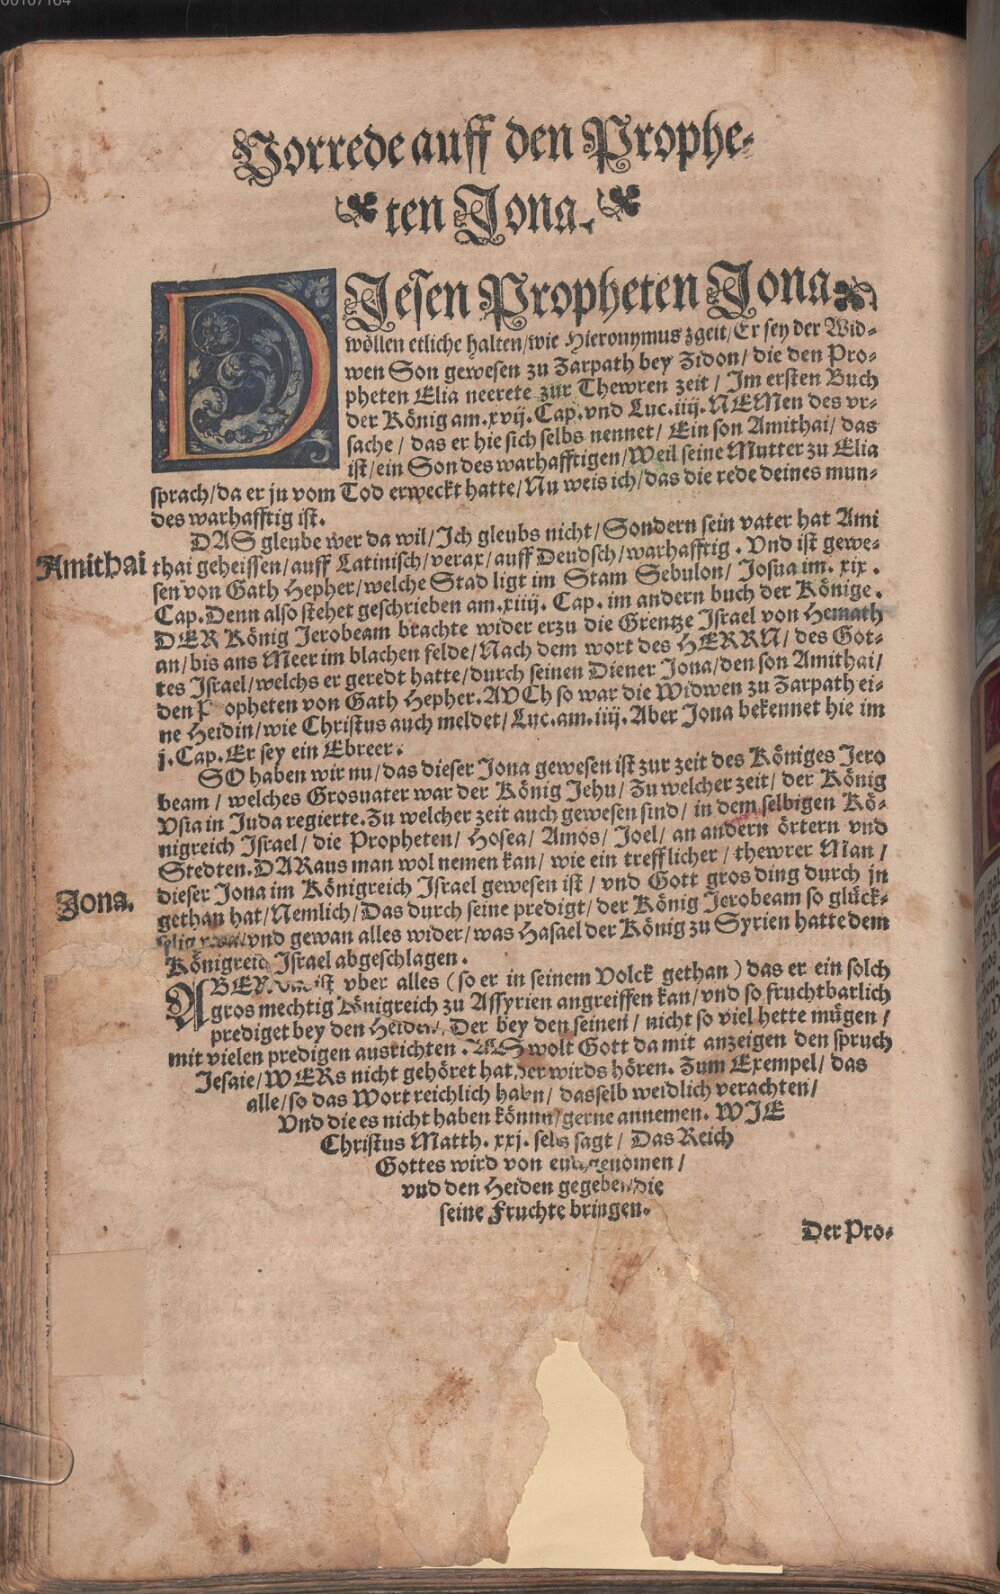 Vorrede auff den Prophe-
ten Jona.
DJesen Propheten Jona
wöllen etliche halten/wie Hieronymus zgeit/Er sey der Wid-
wen Son gewesen zu Zarpath bey Zidon/die den Pro-
pheten Elia neerete zur Thewren zeit/Im ersten Buch
der König am.xvij.Cap.vnd Luc.iiij.NEMen des vr-
sache/das er hie sich selbs nennet/Ein son Amithai/das
ist/ein Son des warhafftigen/Weil seine Mutter zu Elia
sprach/da er jn vom Tod erweckt hatte/Nu weis ich/das die rede deines mun-
des warhafftig ist.
DAS gleube wer da wil/Jch gleubs nicht/Sondern sein vater hat Ami
Amithai
thai geheissen/auff Latinisch/verax/auff Deudsch/warhafftig. Vnd ist gewe-
sen von Gath Hepher/welche Stad ligt im Stam Sebulon/Josua im. xix.
Cap.Denn also stehet geschrieben am.xiiij. Cap. im andern buch der Könige.
DER König Jerobeam brachte wider erzu die Grentze Israel von Hemath
an/bis ans Meer im blachen felde/Nach dem wort des HERRN/des Got-
tes Israel/welchs er geredt hatte/durch seinen Diener Jona/den son Amithai/
den P opheten von Gath Hepher.AVCh so war die Widwen zu Zarpath ei-
ne Heidin/wie Christus auch meldet/Luc.am.iiij.Aber Jona bekennet hie im
j.Cap.Er sey ein Ebreer.
SO haben wir nu/das dieser Jona gewesen ist zur zeit des Königes Jero
beam/welches Grosuater war der König Jehu/Zu welcher zeit/der König
Vsia in Juda regierte.Zu welcher zeit auch gewesen sind/in dem selbigen Kö-
nigreich Israel/die Propheten/Hosea/Amos/Joel/an andern örtern vnd
Stedten.DARaus man wol nemen kan/wie ein trefflicher/thewrer Man/
dieser Jona im Königreich Israel gewesen ist/vnd Gott gros ding durch jn
Jona.
gethan hat/Nemlich/Das durch seine predigt/der König Jerobeam so glück-
selig war/vnd gewan alles wider/was Hasael der König zu Syrien hatte dem
Königreich Israel abgeschlagen.
ABER ist vber alles (so er in seinem Volck gethan) das er ein solch
gros mechtig Königreich zu Assyrien angreiffen kan/vnd so fruchtbarlich
prediget bey den Heiden/Der bey den seinen/nicht so viel hette mügen/
mit vielen predigen ausrichten.ALS wolt Gott da mit anzeigen den spruch
Jesaie/WERs nicht gehöret hat,der wirds hören. Zum Exempel/das
alle/so das Wort reichlich haben/dasselb weidlich verachten/
Vnd die es nicht haben können/gerne annemen. WJE
Christus Matth. xxj. selbs sagt/Das Reich
Gottes wird von euch genomen/
vnd den Heiden gegeben/die
seine Fruchte bringen.
Der Pro-